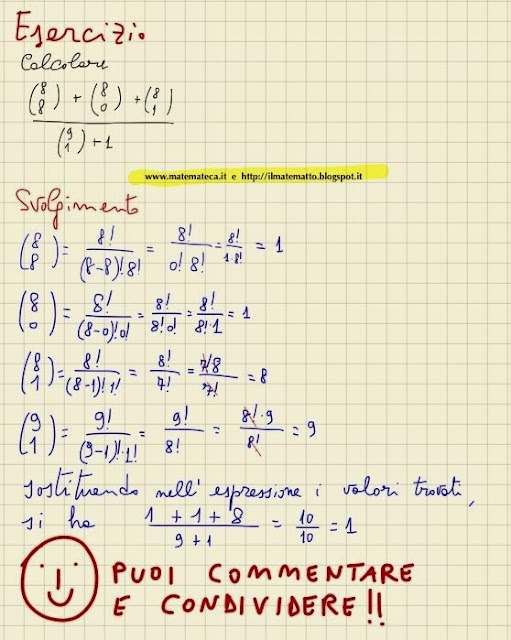 Esercizio
Calcolare
(8 8) + (8 0) + (8 1)
(9 1) + 1
www.matemateca.it e http://ilmatematto.blogspot.it
Svolgimento
(8 8) = 8!/(8-8)!8! = 8!/0! 8! = 8!/1·8! = 1
(8 0) = 8!/(8-0)!0! = 8!/8!0! = 8!/8!·1 = 1
(8 1) = 8!/(8-1)!1! = 8!/7! = 7!8/7! = 8
(9 1) = 9!/(9-1)!·1! = 9!/8! = 8!·9/8! = 9
sostituendo nell'espressione i valori trovati,
si ha 1 + 1 + 8/9 + 1 = 10/10 = 1
PUOI COMMENTARE
E CONDIVIDERE!!